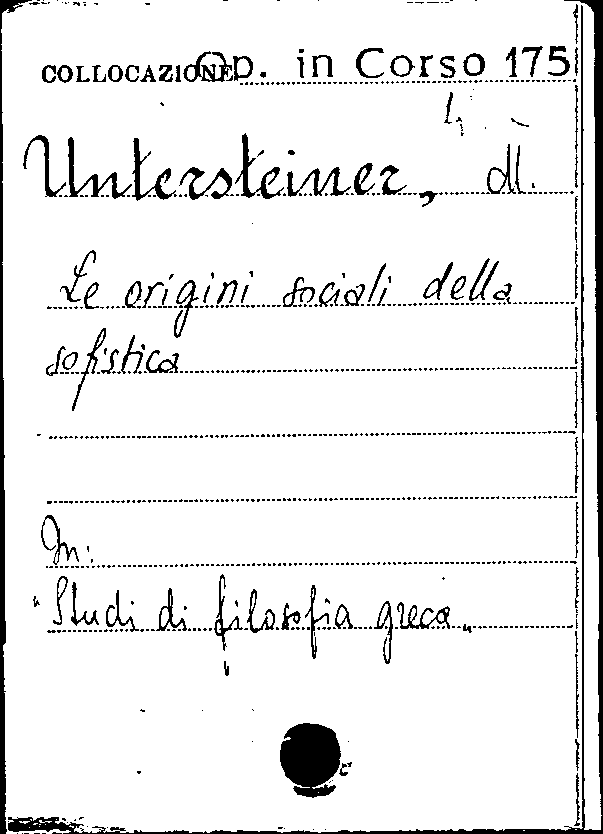 COLLOCAZIONE Op. in Corso 175
Untersteiner, M.
Le origini sociali della
sofistica
In:
"Studi di filosofia greca"